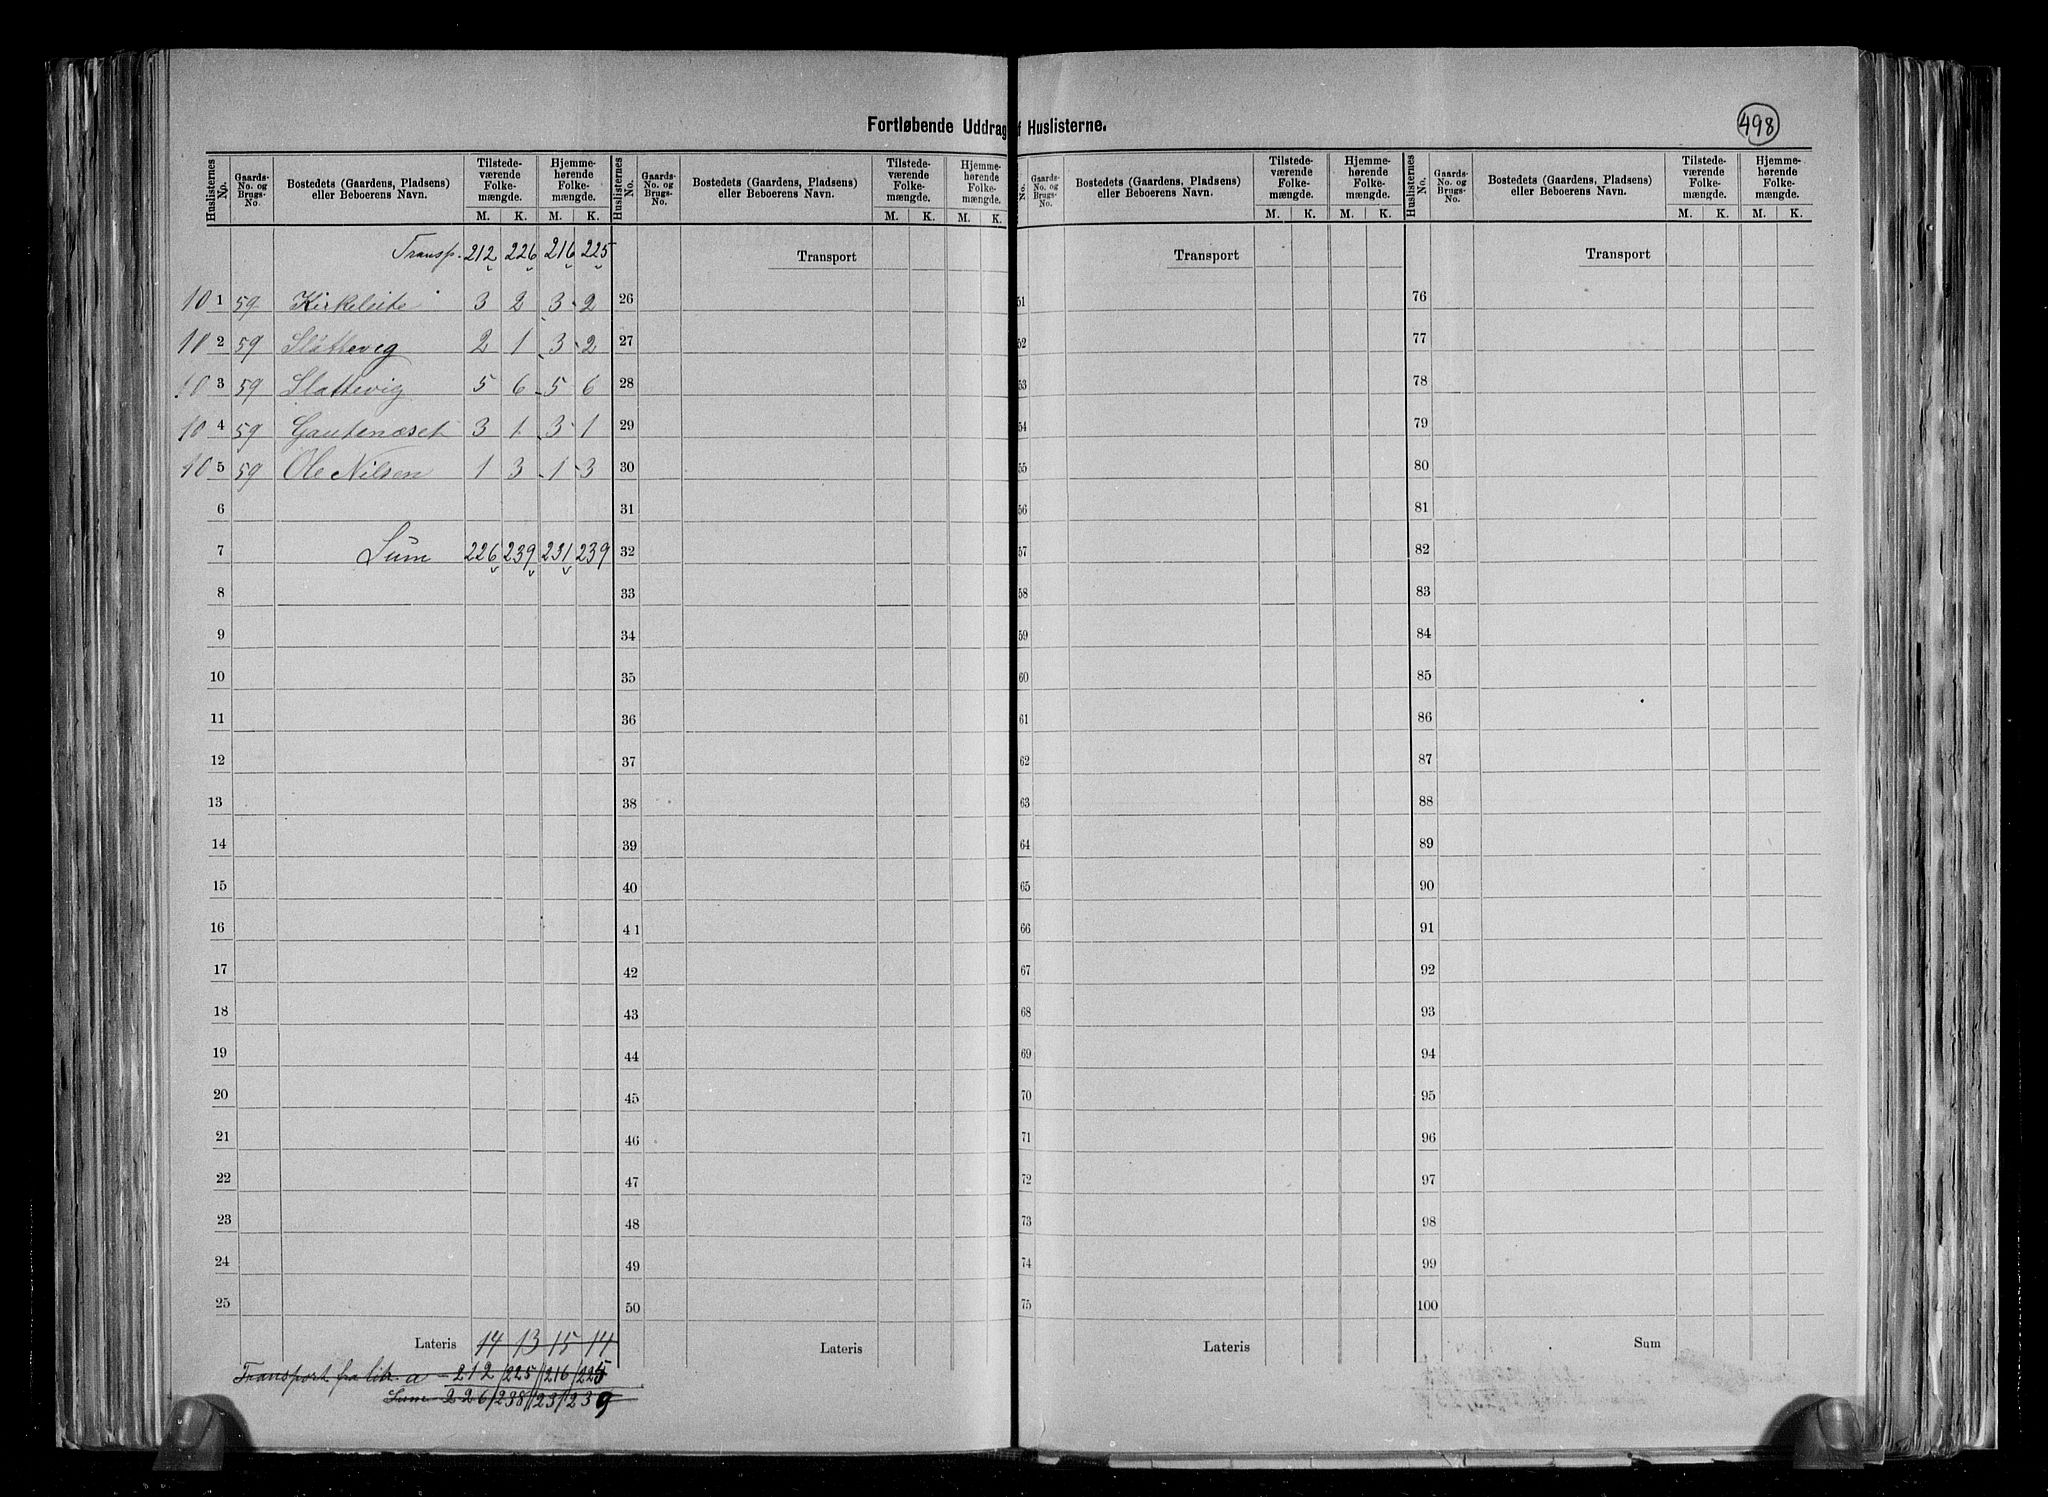 Fortløbende Uddrag f Huslisterne.
498
Huslisternes No. Gaards-No. og Brugs-No. Bostedets (Gaardens, Pladsens) eller Beboerens Navn. Tilstedeværende Folkemængde. M. K. Hjemmehørende Folkemængde. M. K.
Transp. 212 226 216 225
10 1 59 Kirkeleite 3 2 3 2
10 2 59 Slåttevig 2 1 3 2
10 3 59 Slattevig 5 6 5 6
10 4 59 Gautenæset 3 1 3 1
10 5 59 Ole Nilsen 1 3 1 3
6
7 Sum 226 239 231 239
8
9
10
11
12
13
14
15
16
17
18
19
20
21
22
23
24
25
Lateris 14 13 15 14
Transport fra litr a 212 225 216 225
Sum 226 238 231 239
Huslisternes No. Gaards-No. og Brugs-No. Bostedets (Gaardens, Pladsens) eller Beboerens Navn. Tilstedeværende Folkemængde. M. K. Hjemmehørende Folkemængde. M. K.
Transport
26
27
28
29
30
31
32
33
34
35
36
37
38
39
40
41
42
43
44
45
46
47
48
49
50
Lateris
No. Gaards-No. og Brugs-No. Bostedets (Gaardens, Pladsens) eller Beboerens Navn. Tilstedeværende Folkemængde. M. K. Hjemmehørende Folkemængde. M. K.
Transport
51
52
53
54
55
56
57
58
59
60
61
62
63
64
65
66
67
68
69
70
71
72
73
74
75
Lateris
Huslisternes No. Gaards-No. og Brugs-No. Bostedets (Gaardens, Pladsens) eller Beboerens Navn. Tilstedeværende Folkemængde. M. K. Hjemmehørende Folkemængde. M. K.
Transport
76
77
78
79
80
81
82
83
84
85
86
87
88
89
90
91
92
93
94
95
96
97
98
99
100
Sum